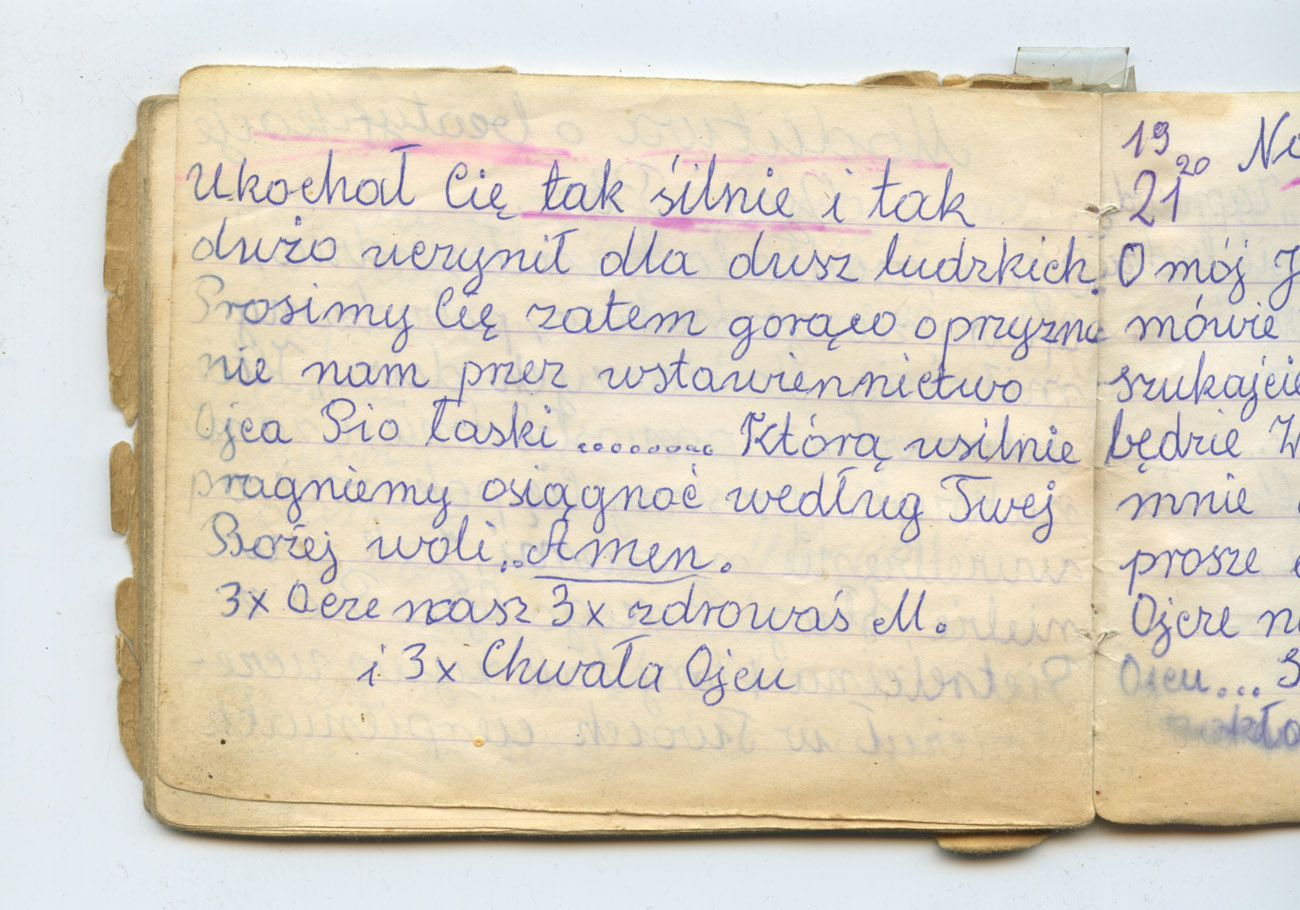 Ukochał Cię tak śilnie i tak
dużo uczynił dla dusz ludzkich.
Prosimy Cię zatem gorąco o przyzna
nie nam przez wstawiennictwo
Ojca Pio łaski ......... Którą usilnie
pragniemy osiągnąć według Twej
Bożej woli... Amen.
3x Ocze nasz 3x zdrowaś M.
i 3x Chwała Ojcu
19
20
21
O mój
mówie
szukajcie
będzie
mnie
prosze
Ojcze
Ojcu... 3